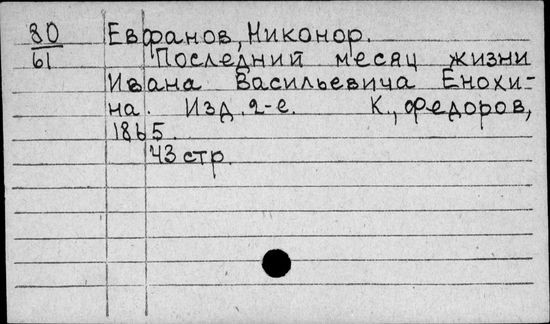 80 Евфанов, Никонор.
61 Последний месяц жизни
Ивана Васильевича Енохи-
на. Изд. 2-е. К., Федоров,
1865.
43 стр.